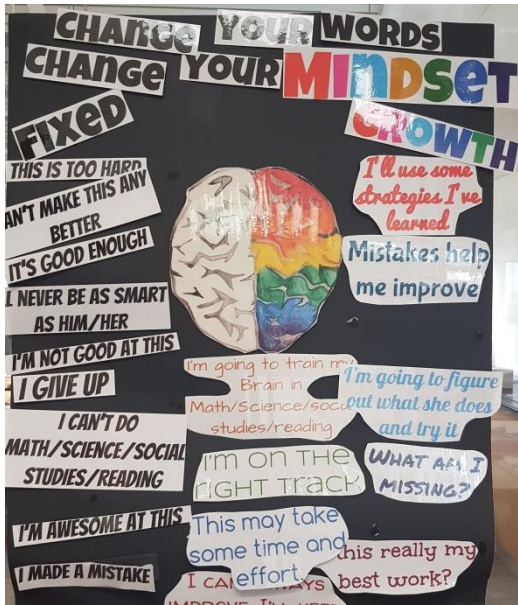 CHANGE YOUR WORDS
CHANGE YOUR MINDSET
FIXED
GROWTH
THIS IS TOO HARD
AN'T MAKE THIS ANY
BETTER
IT'S GOOD ENOUGH
I NEVER BE AS SMART
AS HIM/HER
I'M NOT GOOD AT THIS
I GIVE UP
I CAN'T DO
MATH/SCIENCE/SOCIAL
STUDIES/READING
I'M AWESOME AT THIS
I MADE A MISTAKE
I'll use some
strategies I've
learned
Mistakes help
me improve
I'm going to train my
Brain in
Math/Science/soci
studies/reading
I'm going to figure
out what she does
and try it
I'm on the
right track
WHAT AM I
MISSING?
This may take
some time and
effort
this really my
best work?
I CAN